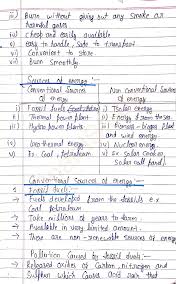 iii) Burn without giving out any smoke or
harmful gases
iv) Cheap and easily available
v) Easy to handle, safe to transport
vi) Convenient to store
vii) Burn smoothly.
Sources of energy :-
Conventional Sources of energy
Non conventional Sources of energy
i) Fossil fuels
i) Solar energy
ii) Thermal power plant
ii) Energy from the sea
iii) Hydro power plants
iii) Biomass - biogas plant
and wind energy
iv)
iv) Nuclear energy
v) Ex Coal, petroleum
v) Ex Solar cooker,
Solar cell panel
Conventional Sources of energy :-
1 Fossil fuels :-
→ Fuels developed from the fossils ex
Coal petroleum
→ Take millions of years to form
→ Available in very limited amount
→ These are non-renewable sources of energy
Pollution caused by fossil fuels :-
→ Released oxides of Carbon, nitrogen and
Sulphur which causes acid rain that